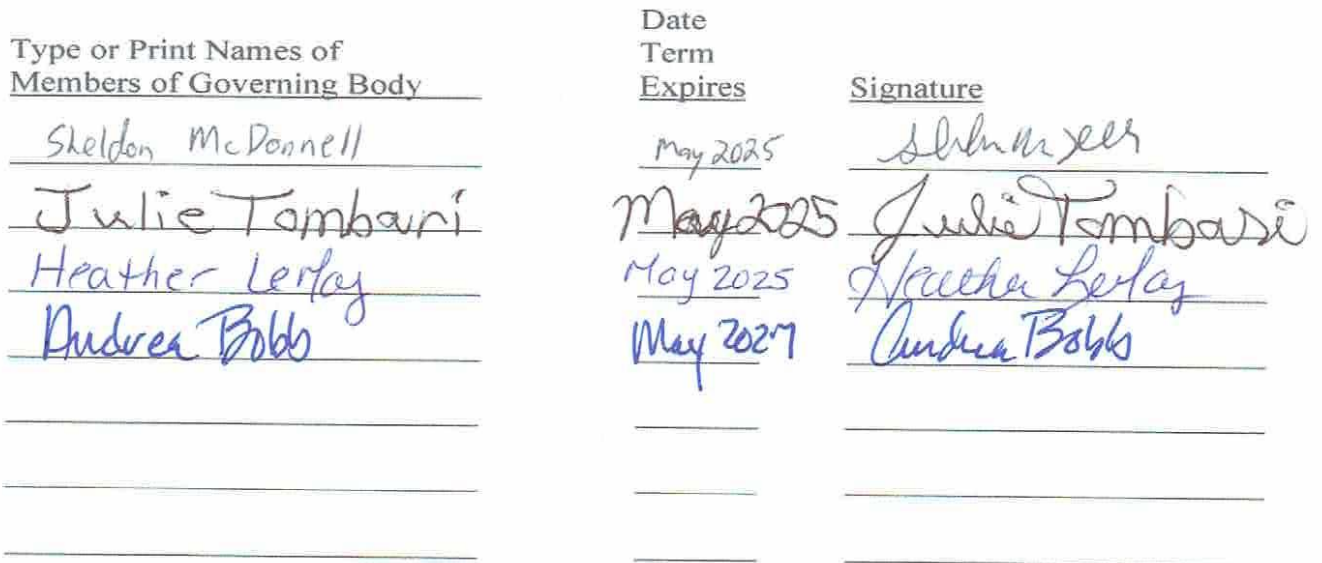 Date
Type or Print Names of Term
Members of Governing Body Expires Signature
Sheldon McDonnell May 2025
Julie Tombari May 2025 Julie Tombari
Heather Lerfay May 2025 Heather Lerfay
Andrea Bobb May 2027 Andrea Bobb